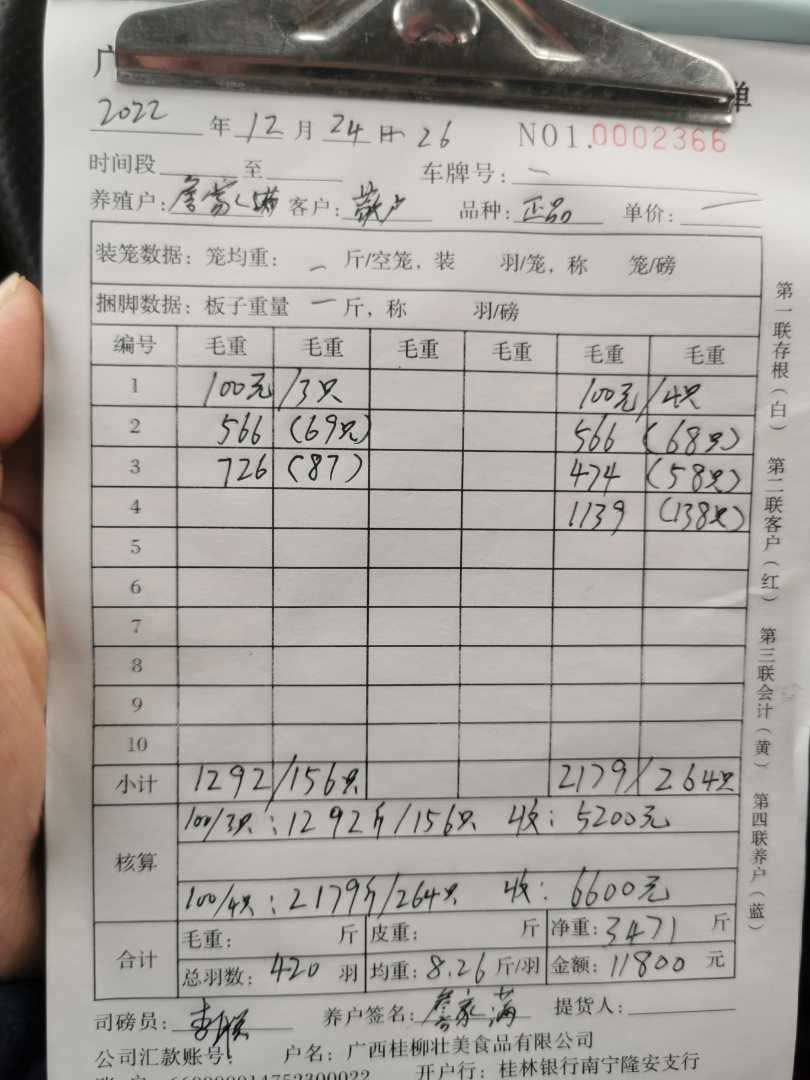 广 单
2022 年 12 月 24日-26 NO1.0002366
时间段 至 车牌号: 一
养殖户: 客户: 散户 品种: 正品 单价: 一
装笼数据: 笼均重: 一 斤/空笼, 装 羽/笼, 称 笼/磅
捆脚数据: 板子重量 一 斤, 称 羽/磅
编号 毛重 毛重 毛重 毛重 毛重 毛重
1 100元/3只 100元/4只
2 566 (69只) 566 (68只)
3 726 (87) 474 (58只)
4 1139 (138只)
5
6
7
8
9
10
小计 1292/156只 2179/264只
核算 100/3只:1292斤/156只 收:5200元
100/4只:2179斤/264只 收:6600元
合计 毛重: 斤 皮重: 斤 净重:3471 斤
总羽数: 420 羽 均重:8.26 斤/羽 金额:11800 元
司磅员: 养户签名: 提货人:
公司汇款账号: 户名: 广西桂柳壮美食品有限公司
开户行: 桂林银行南宁隆安支行
第一联存根(白) 第二联客户(红) 第三联会计(黄) 第四联养户(蓝)